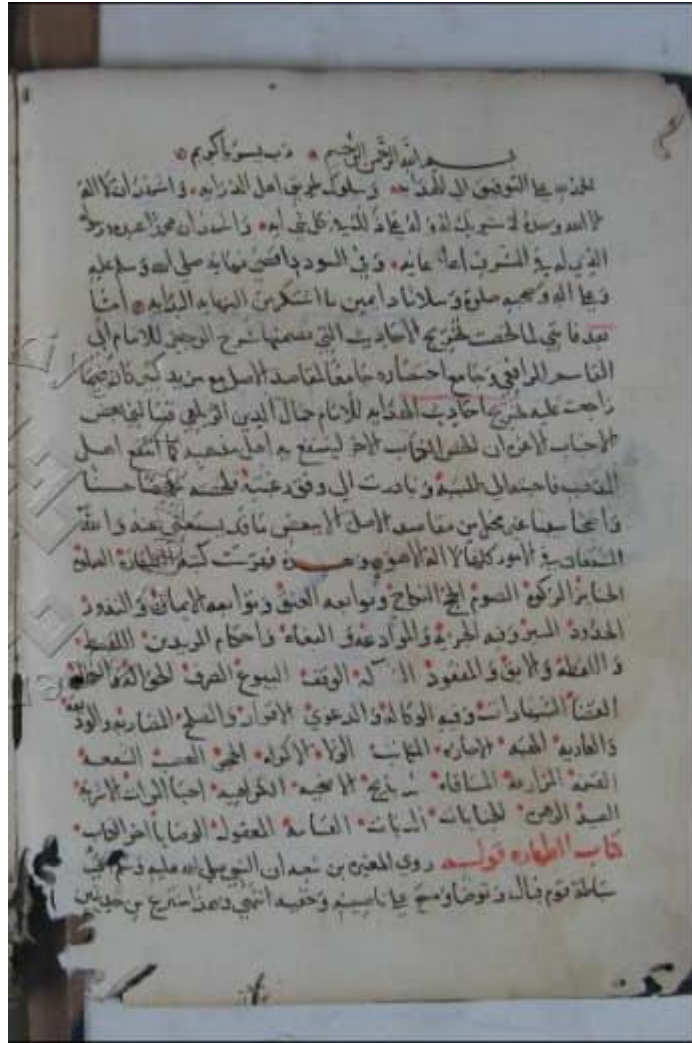 بسم الله الرحمن الرحيم رب يسر يا كريم
الحمد لله على التوفيق الى الهدايه وسلوك طريق اهل الدرايه واشهد ان لا اله
الا الله وحده لا شريك له وله في كل شي ايه واشهد ان محمدا عبده ورسوله
الذي له في الشرف اعلا غايه وفي السودد اقصى نهايه صلى الله وسلم عليه
وعلى اله وصحبه صلوة وسلاما دايمين ما استلزمت النهايه البدايه اما
بعد فانني لما لخصت تخريج الاحاديث التي تضمنها شرح الوجيز للامام ابي
القاسم الرافعي وجا مع اختصاره جامعا لمقاصد الاصل مع مزيد كثير كان فيما
راجعت عليه تخريج احاديث الهدايه للامام جمال الدين الزيلعي فسالني بعض
الاحباب الاعزه ان الخص الكتاب الاخر لينتفع به اهل مذهبه كما انتفع اهل
المذهب فاجبته الى طلبه وبادرت الى وفق رغبته فلخصته تلخيصا حسنا
واضحا مبينا غير مخل من مقاصد الاصل الا ببعض ما قد يستغنى عنه والله
المستعان في الامور كلها لا اله الا هو وهذه فهرست كتبه الطهارة الصلاة
الجنايز الزكوة الصوم الحج النكاح وتوابعه العتق وتوابعه الايمان والنذور
الحدود السير وفيه الجزية والموادعة والبغاه واحكام المرتدين اللقيط
واللقطه والابق والمفقود الشركه الوقف البيوع الصرف الحوالة والكفالة
القضا الشهادات وفيه الوكاله والدعوى الاقرار والصلح المضاربه والوديعة
والعاريه الهبه الاجاره المكاتب الولا الاكراه الحجر الغصب الشفعه
القسمة المزارعة المساقاه الذبايح الاضحيه الكراهيه احيا الموات الاشربة
الصيد الرهن الجنايات الديات القسامة المعقول الوصايا اخر الكتاب
كتاب الطهاره قوله روى المغيرة بن شعبه ان النبي صلى الله عليه وسلم اتى
سباطة قوم فبال وتوضا ومسح على ناصيته وخفيه انتهى وهذا منتزع من حديثين